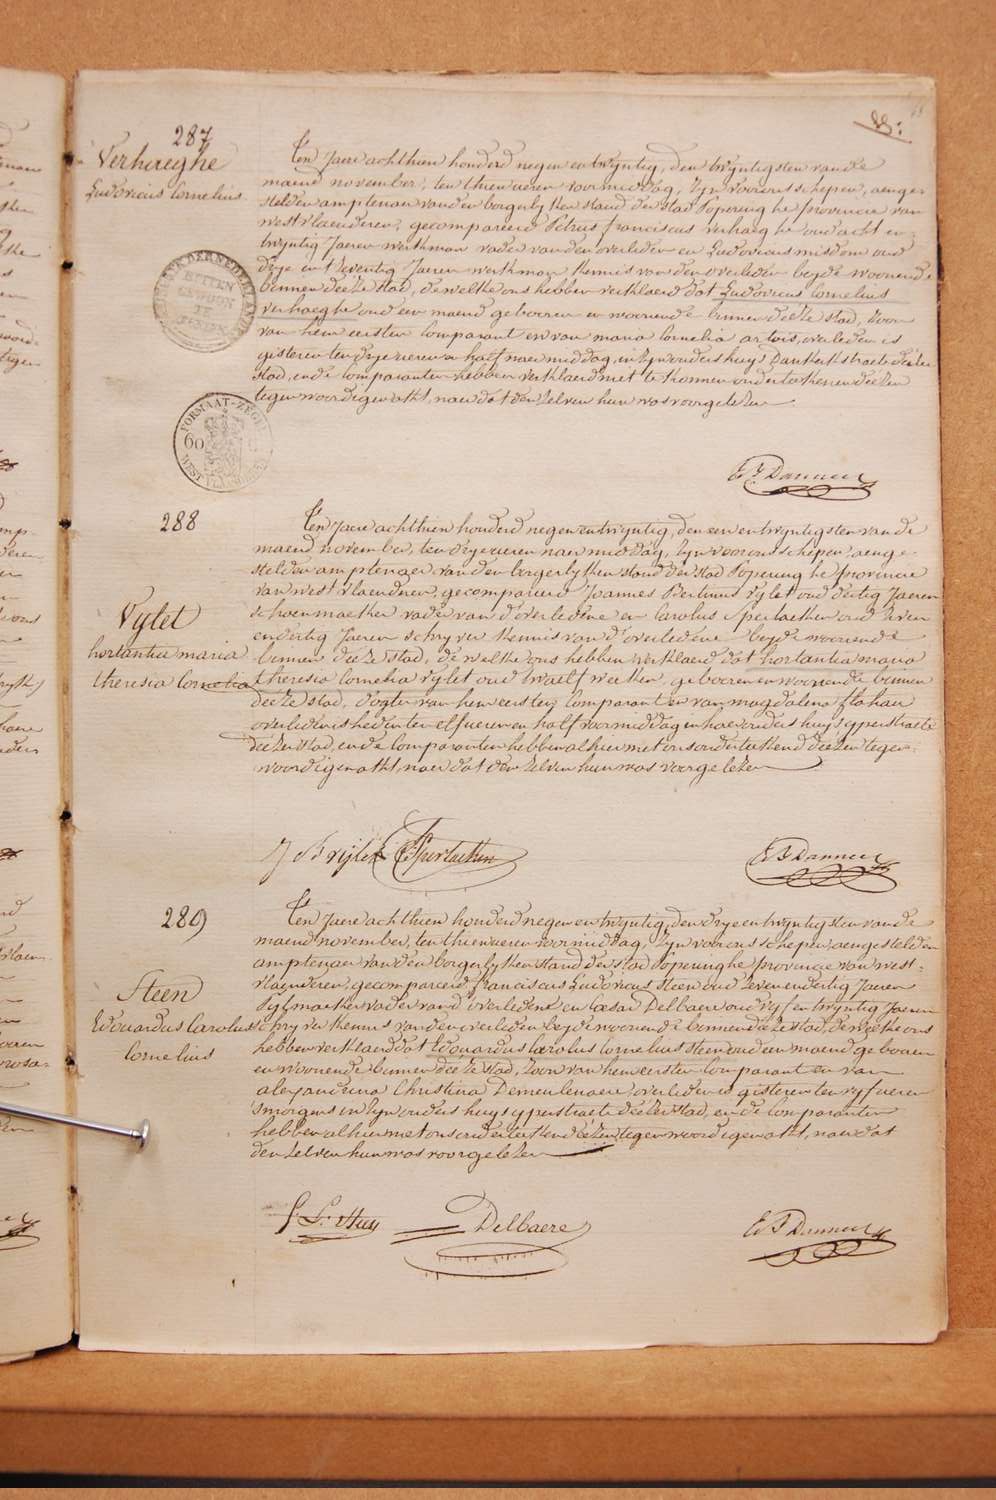 287
Verhaeghe
Ludovicus Cornelius
Ten Jaere achthien honderd negen en twyntig, den twyntigsten van de
maend november, ten thien ueren voormiddag, Zyn voor ons schepen, aenge-
stelden amptenaer van den borgerlyken stand der stad Poperinghe provincie van
westvlaenderen, gecompareerd Petrus franciscus verhaeghe oud acht en
twyntig Jaeren werkman vader van den overleden en Ludovicus oud
drye en tzeventig Jaeren werkman kennis van den overleden beyde woonende
binnen deeze stad, dewelke ons hebben verklaerd dat Ludovicus Cornelius
verhaeghe oud een maend gebooren en woonende binnen deeze stad, Zoon
van hem eersten Comparant en van maria Cornelia artois, overleden is
gisteren ten drye ueren en half naermiddag, in Zyn ouders huys Dunkerkstraete deeser
stad, ende Comparanten hebben verklaerd niet te konnen onderteekenen deezen
tegenwoordigen akt, naer dat den Zelven hun was voorgelezen
288
Vylet
hortantia maria
theresia Cornelia
Ten Jaere achthien honderd negen en twyntig, den een en twyntigsten van de
maend november, ten drye ueren naermiddag, Zyn voor ons schepen, aenge-
stelden amptenaer van den borgerlyken stand der stad Poperinghe provincie
van westvlaenderen, gecompareerd Joannes Bertinus vylet oud dertig Jaeren
schoenmaeker vader van d'overledene en Carolus Spertaeken oud
en dertig Jaeren schryver kennis van d'overledene beyde woonende
binnen deeze stad, de welke ons hebben verklaerd dat hortantia maria
theresia Cornelia vylet oud twaelf weeken, gebooren en woonende binnen
deeze stad, dogter van hem eersten Comparant en van magdalena flahau
overleden is heden ten elf ueren en half voormiddag in haer ouders huys yperstraete
deezer stad, ende Comparanten hebben alhier met ons onderteekend deezen tegen-
woordigen akt, naer dat den Zelven hun was voorgelezen
289
Steen
Edouardus Carolus
Cornelius
Ten Jaere achthien honderd negen en twyntig, den drye en twyntigsten van de
maend november, ten thien ueren voormiddag, Zyn voor ons schepen, aengestelden
amptenaer van den borgerlyken stand der stad Poperinghe provincie van west-
vlaenderen, gecompareerd franciscus Ludovicus steen oud zeven en dertig Jaeren
vader van d'overledene en Delbaere oud vyf en twyntig Jaeren
schryver kennis van den overleden beyde woonende binnen deeze stad, dewelke ons
hebben verklaerd dat Edouardus Carolus Cornelius steen oud een maend gebooren
en woonende binnen deeze stad, zoon van hem eersten Comparant en van
alexandrina Christina Demeulenaere, overleden is gisteren ten vyf ueren
smorgens in Zyn ouders huys yperstraete deezer stad, ende Comparanten
hebben alhier met ons onderteekend deezen tegenwoordigen akt, naer dat
den Zelven hun was voorgelezen
Delbaere
FORMAAT-ZEGEL
60